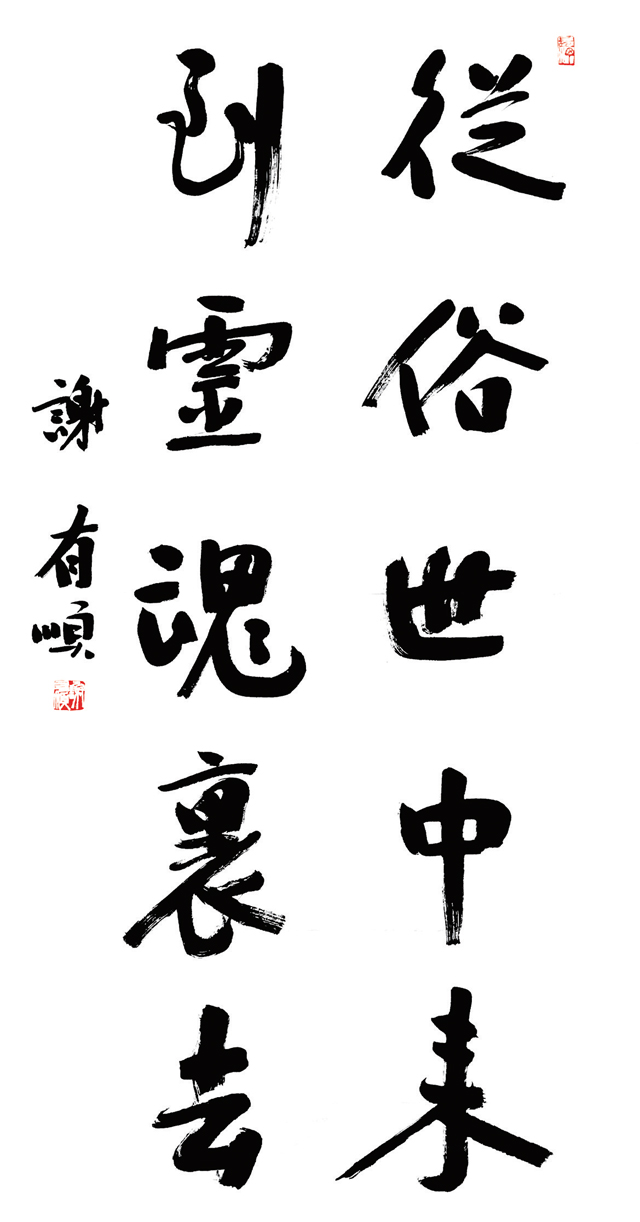 從俗世中来
到靈魂裏去
謝有順